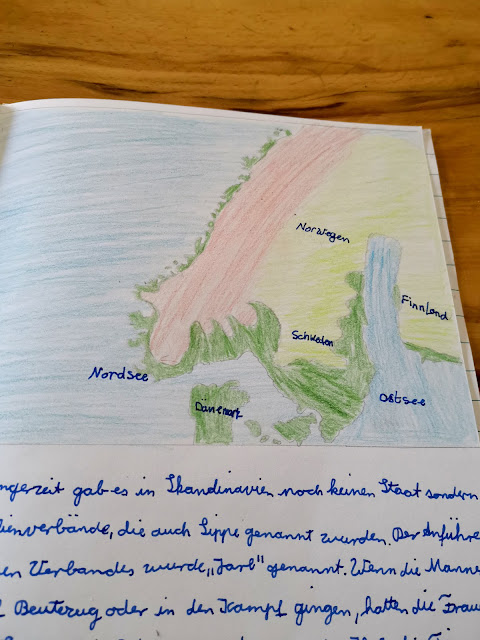 Norwegen
Finnland
Schweden
Nordsee
Ostsee
Dänemark
ngerzeit gab es in Skandinavien noch keinen Staat sondern
lienverbände, die auch Sippe genannt wurden. Der Anführe
en Verbandes wurde „Jarl" genannt. Wenn die Männe
f Beutezug oder in den Kampf gingen, hatten die Frau